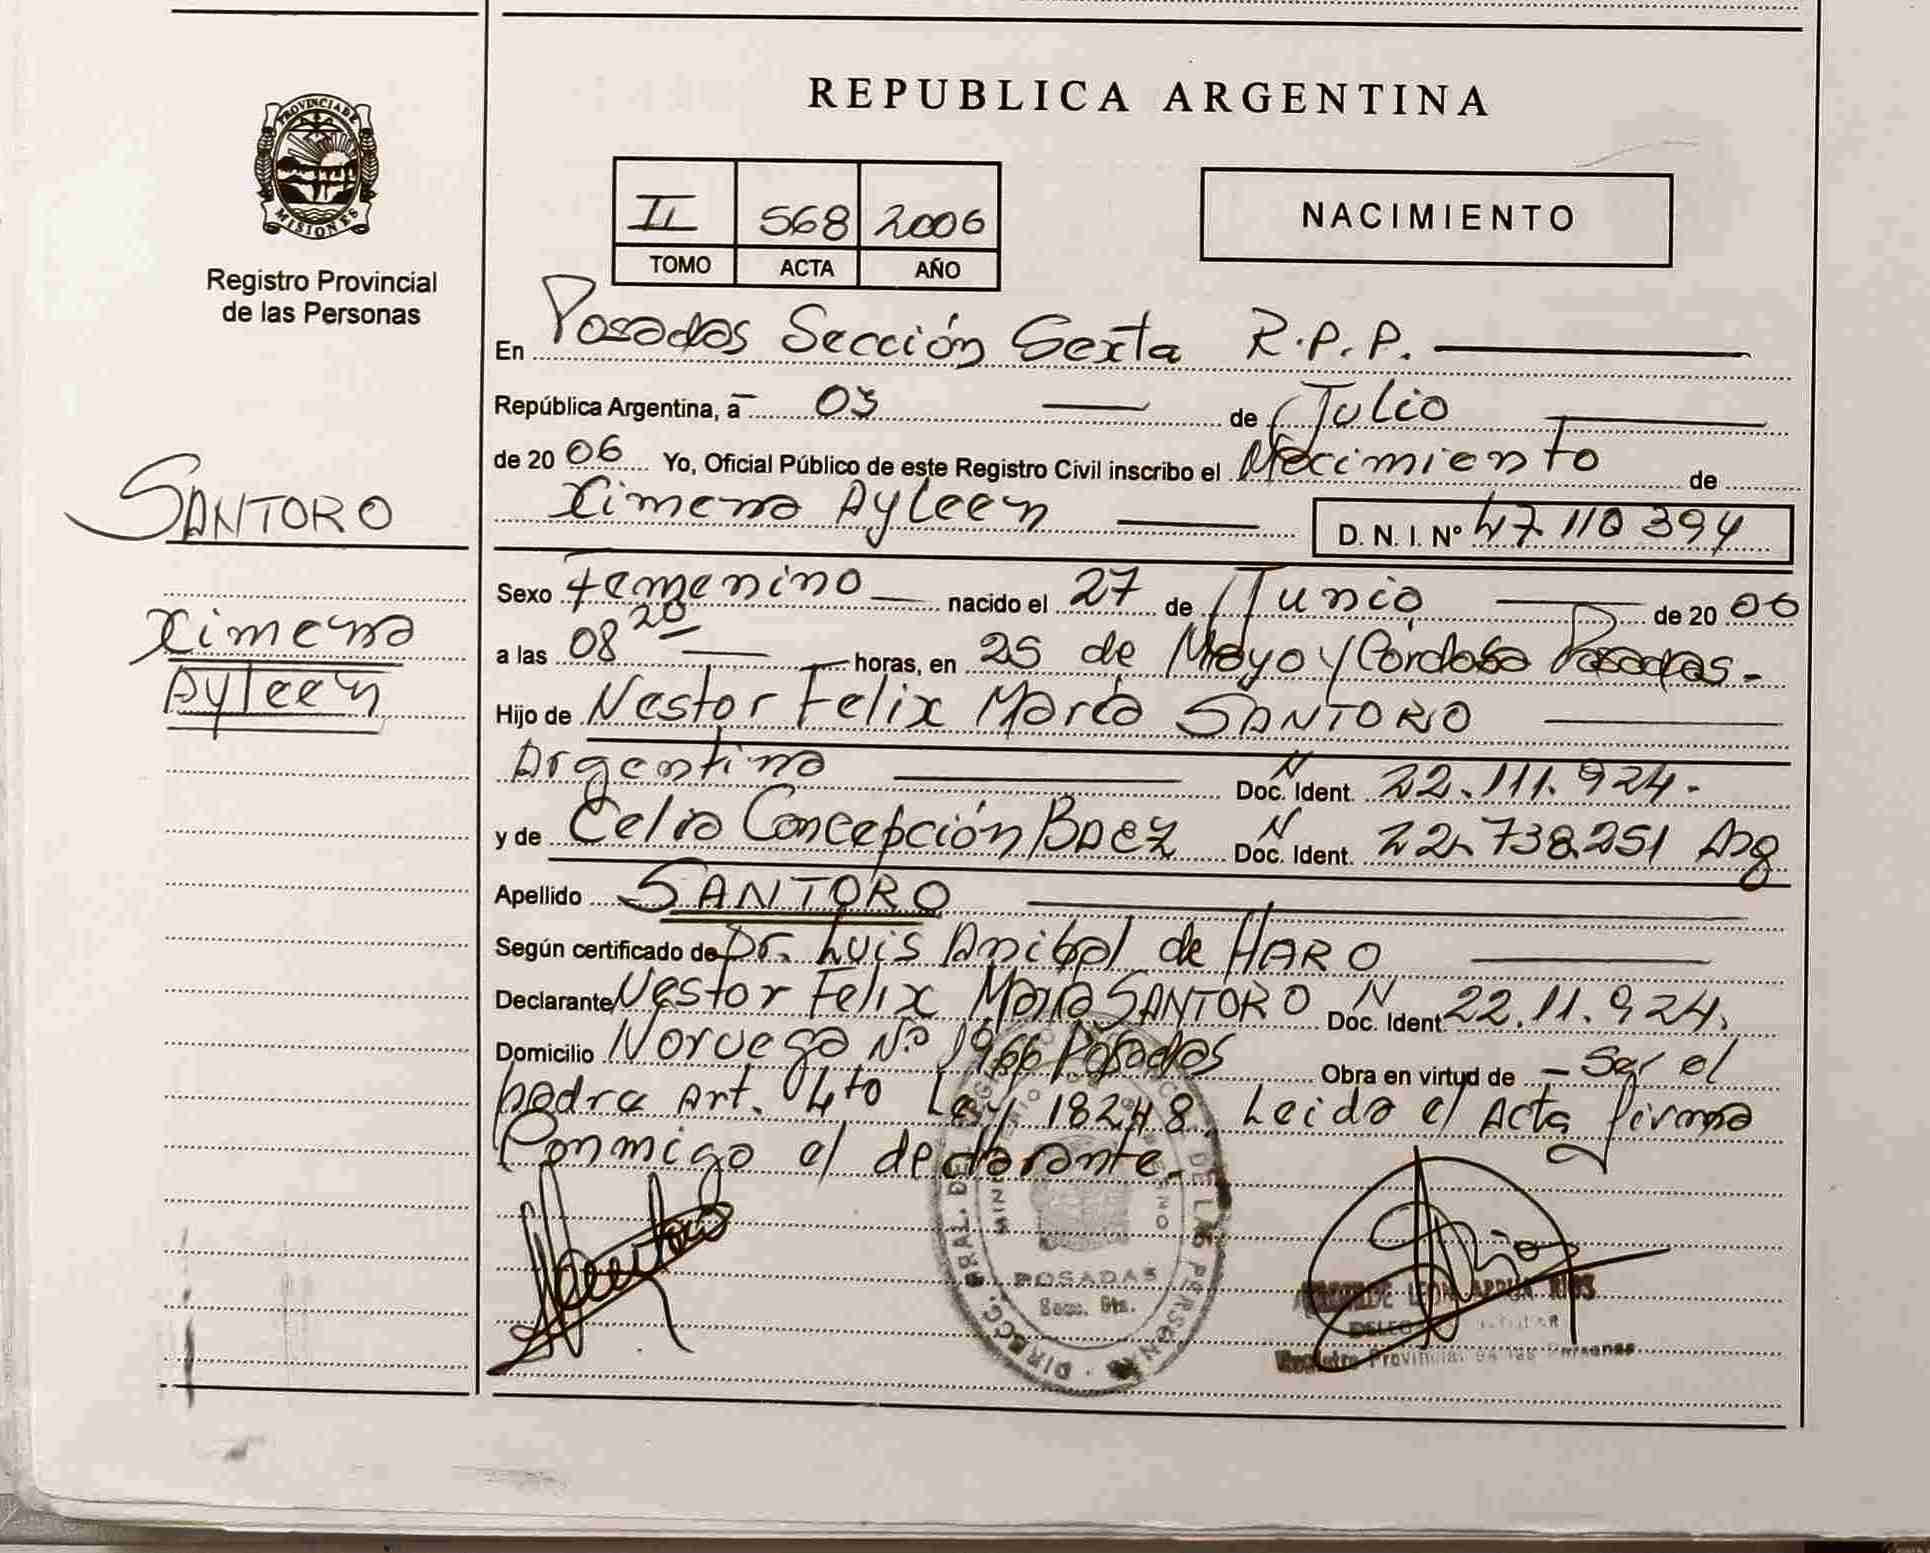 REPUBLICA ARGENTINA
PROVINCIA DE
MISIONES
Registro Provincial
de las Personas
II 568 2006
TOMO ACTA AÑO
NACIMIENTO
En Posadas Sección Sexta R.P.P.
República Argentina, a 03 de Julio
de 2006 Yo, Oficial Público de este Registro Civil inscribo el Nacimiento de
Ximena Ayleen D. N. I. Nº 47 110 394
SANTORO
Ximena
Ayleen
Sexo Femenino nacido el 27 de Junio de 2006
a las 08 20 horas, en 25 de Mayo y Córdoba Posadas.-
Hijo de Nestor Felix María SANTORO
Argentino Doc. Ident. N 22.111.924.-
y de Celia Concepción Baez Doc. Ident. N 22.738.251 Arg
Apellido SANTORO
Según certificado de Dr. Luis Anibal de HARO
Declarante Nestor Felix María SANTORO Doc. Ident. N 22.11.924.
Domicilio Noruega Nº 1966 Posadas Obra en virtud de - Ser el
padre Art. 4to Ley 18248. Leida el Acta firma
Conmigo el declarante.
POSADAS
DIRECC. GRAL. DEL DE LAS PERSONAS
RIOS
Registro Provincial de las Personas